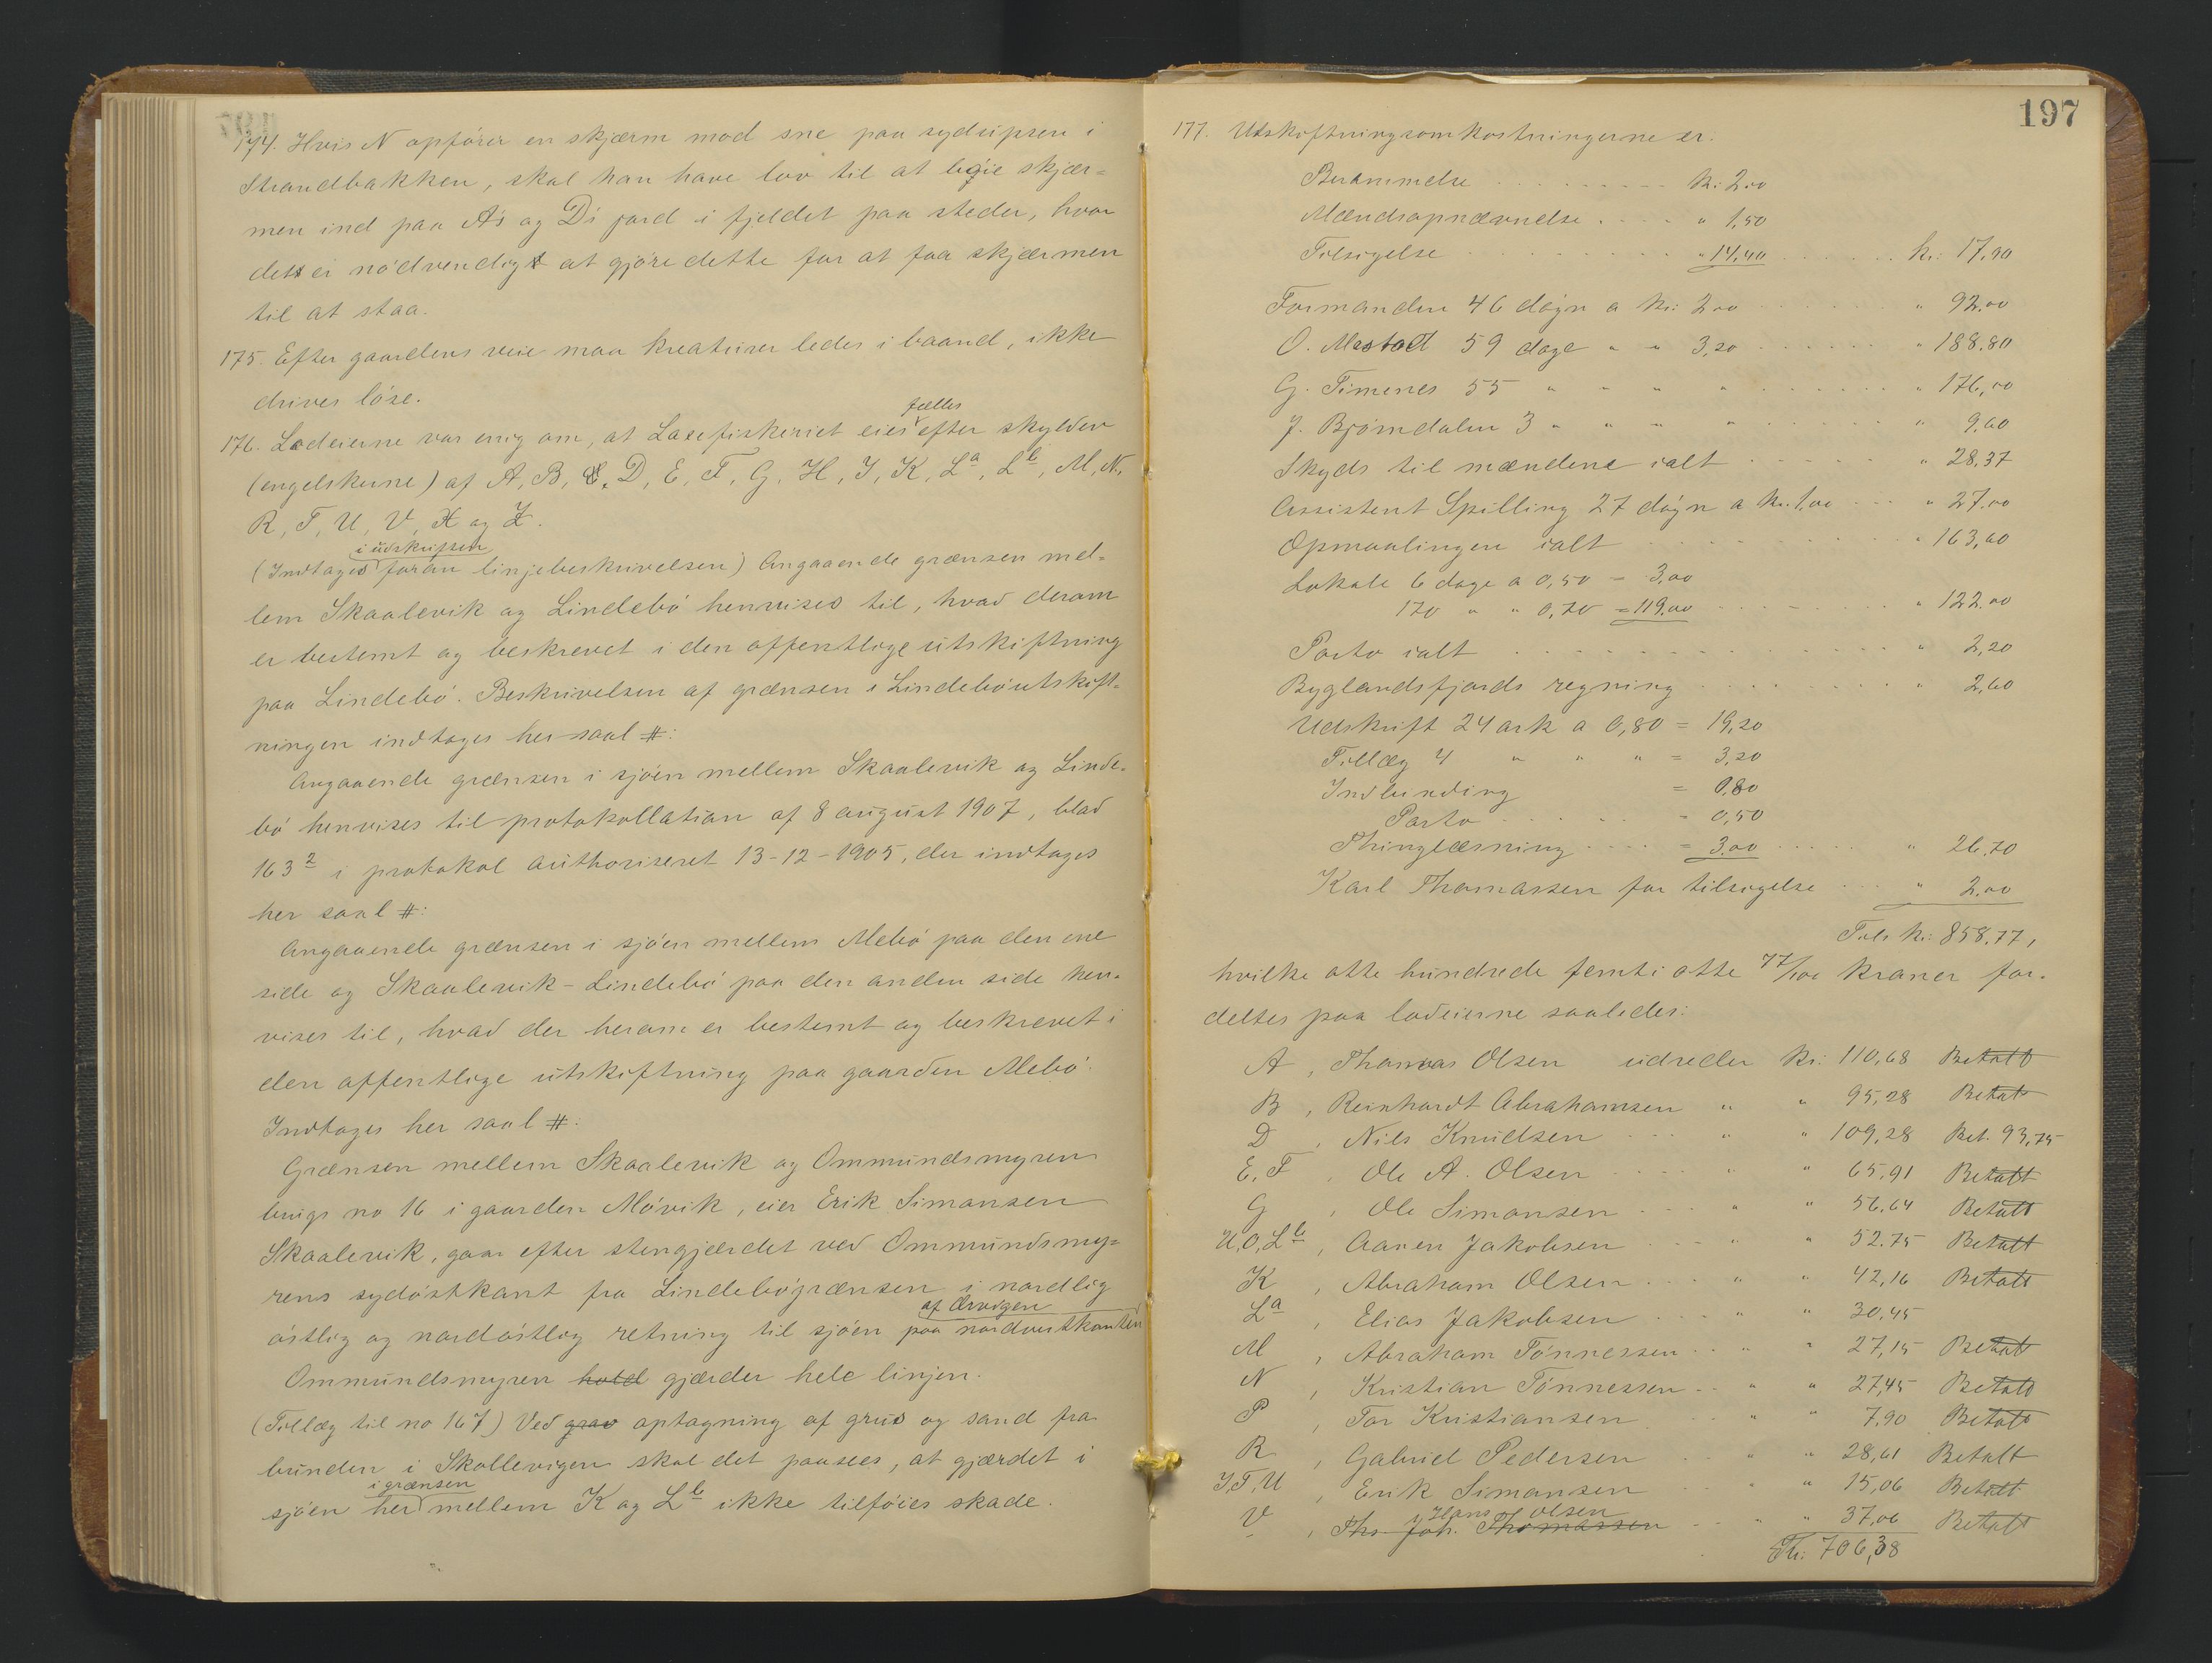 174. Hvis N opfører en skjærm mod sne paa sydsipsen i
Strandbakken, skal han have lov til at bøie skjær=
men ind paa A's og D's jord i fjeldet paa steder, hvor
det er nødvendigt at gjøre dette for at faa skjærmen
til at staa.
175. Efter gaardens veie maa kreaturer ledes i baand, ikke
drives løse.
176. Lodeierne var enig om, at Laxefiskeriet eies fælles efter skylden
(engelskerne) af A, B, C, D, E, F, G, H, I, K, La, Lb, M, N,
R, T, U, V, X og Z.
(Indtages i udskriften foran linjebeskrivelsen) Angaaende grænsen mel=
lem Skaalevik og Lindebø henvises til, hvad derom
er bestemt og beskrevet i den offentlige utskiftning
paa Lindebø. Beskrivelsen af grænsen i Lindebøutskift-
ningen indtages her saal #:
Angaaende grænsen i sjøen mellem Skaalevik og Linde-
bø henvises til protokollation af 8 august 1907, blad
163 2 i protokol authoriseret 13-12-1905, der indtages
her saal #:
Angaaende grænsen i sjøen mellem Mebø paa den ene
side og Skaalevik-Lindebø paa den anden side hen-
vises til, hvad der herom er bestemt og beskrevet i
den offentlige utskiftning paa gaarden Mebø.
Indtages her saal #.
Grænsen mellem Skaalevik og Ommundsmyren
brugs no 16 i gaarden Møvik, eier Erik Simonsen
Skaalevik, gaar efter stengjærdet ved Ommundsmy=
rens sydøstkant fra Lindebøgrænsen i nordlig
østlig og nordøstlig retning til sjøen paa nordvestkanten af Ærvigen
Ommundsmyren hold gjærder hele linjen.
(Tillæg til no 167) Ved grav optagning af grus og sand fra
bunden i Skollevigen skal det paasees, at gjærdet i
sjøen her i grænsen mellem K og Lb ikke tilføies skade.
197
177. Utskiftningsomkostningerne er:
Berammelse kr. 2.00
Mændsopnævnelse " 1,50
Tilsigelse " 14,40 kr. 17,90
Formanden 46 døgn a kr: 2.00 " 92.00
O. Mestad 59 dage " " 3,20 " 188.80
G. Timenes 55 " " " " " 176,00
J. Bjørndalen 3 " " " " " 9.60
Skyds til mændene ialt " 28.37
Assistent Spilling 27 døgn a kr. 1.00 " 27.00
Opmaalingen ialt " 163,60
Lokale 6 dage a 0,50 = 3.00
170 " " 0,70 = 119.00 " 122.00
Porto ialt " 2,20
Byglandsfjords regning " 2,60
Udskrift 24 ark a 0,80 = 19,20
Tillæg 4 " " " = 3,20
Indbinding = 0,80
Porto = 0,50
Thinglæsning = 3.00 " 26.70
Karl Thomassen for tilsigelse " 2.00
Tils kr: 858.77,
hvilke otte hundrede femti otte 77/100 kroner for-
deltes paa lodeierne saaledes:
A, Thomas Olsen udreder kr: 110,68 Betalt
B, Reinhardt Abrahamsen " " 95,28 Betalt
D, Nils Knudsen " " 109,28 Bet. 93,75
E, F, Ole A. Olsen " " 65,91 Betalt
G, Ole Simonsen " " 56,64 Betalt
H, O, Lb, Aanen Jakobsen " " 52.75 Betalt
K, Abraham Olsen " " 42,16 Betalt
La, Elias Jakobsen " " 30,45
M, Abraham Tønnessen " " 27,15 Betalt
N, Kristian Tønnessen " " 27,45 Betalt
P, Tor Kristiansen " " 7,90 Betalt
R, Gabriel Pedersen " " 28,61 Betalt
I, T, U, Erik Simonsen " " 15,06 Betalt
V, Ths. Joh. Thomassen Hans Olsen " " 37,06 Betalt
Tr: 706,38